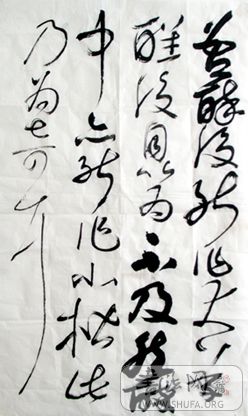 吾醉後能作大草
醒後自以為不及然
中亦能作小楷此
乃為奇耳
WWW.SHUFA.ORG